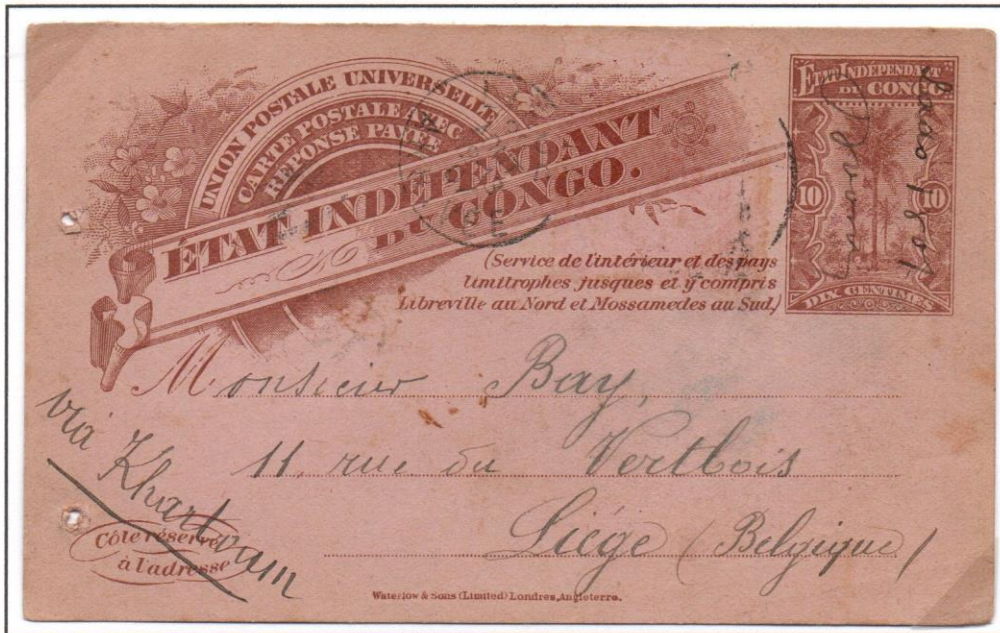 UNION POSTALE UNIVERSELLE
CARTE POSTALE AVEC
RÉPONSE PAYÉE
ÉTAT INDÉPENDANT
DU CONGO.
(Service de l'intérieur et des pays
limitrophes, jusques et y compris
Libreville au Nord et Mossamedes au Sud.)
ÉTAT INDÉPENDANT
DU CONGO
10 10
DIX CENTIMES
Monsieur Bay,
11, rue du Vertbois
Liége (Belgique)
via Khartoum
Côté réservé
à l'adresse
Waterlow & Sons (Limited) Londres, Angleterre.